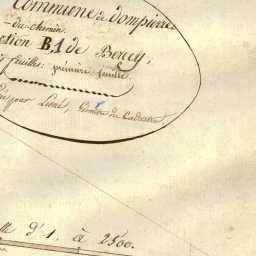 Commune de dompierre
du chemin.
ction B, 1 de Bercy,
feuilles: première feuille.
pour Liené, Géomètre du Cadastre,
lle d' 1. à 2500.